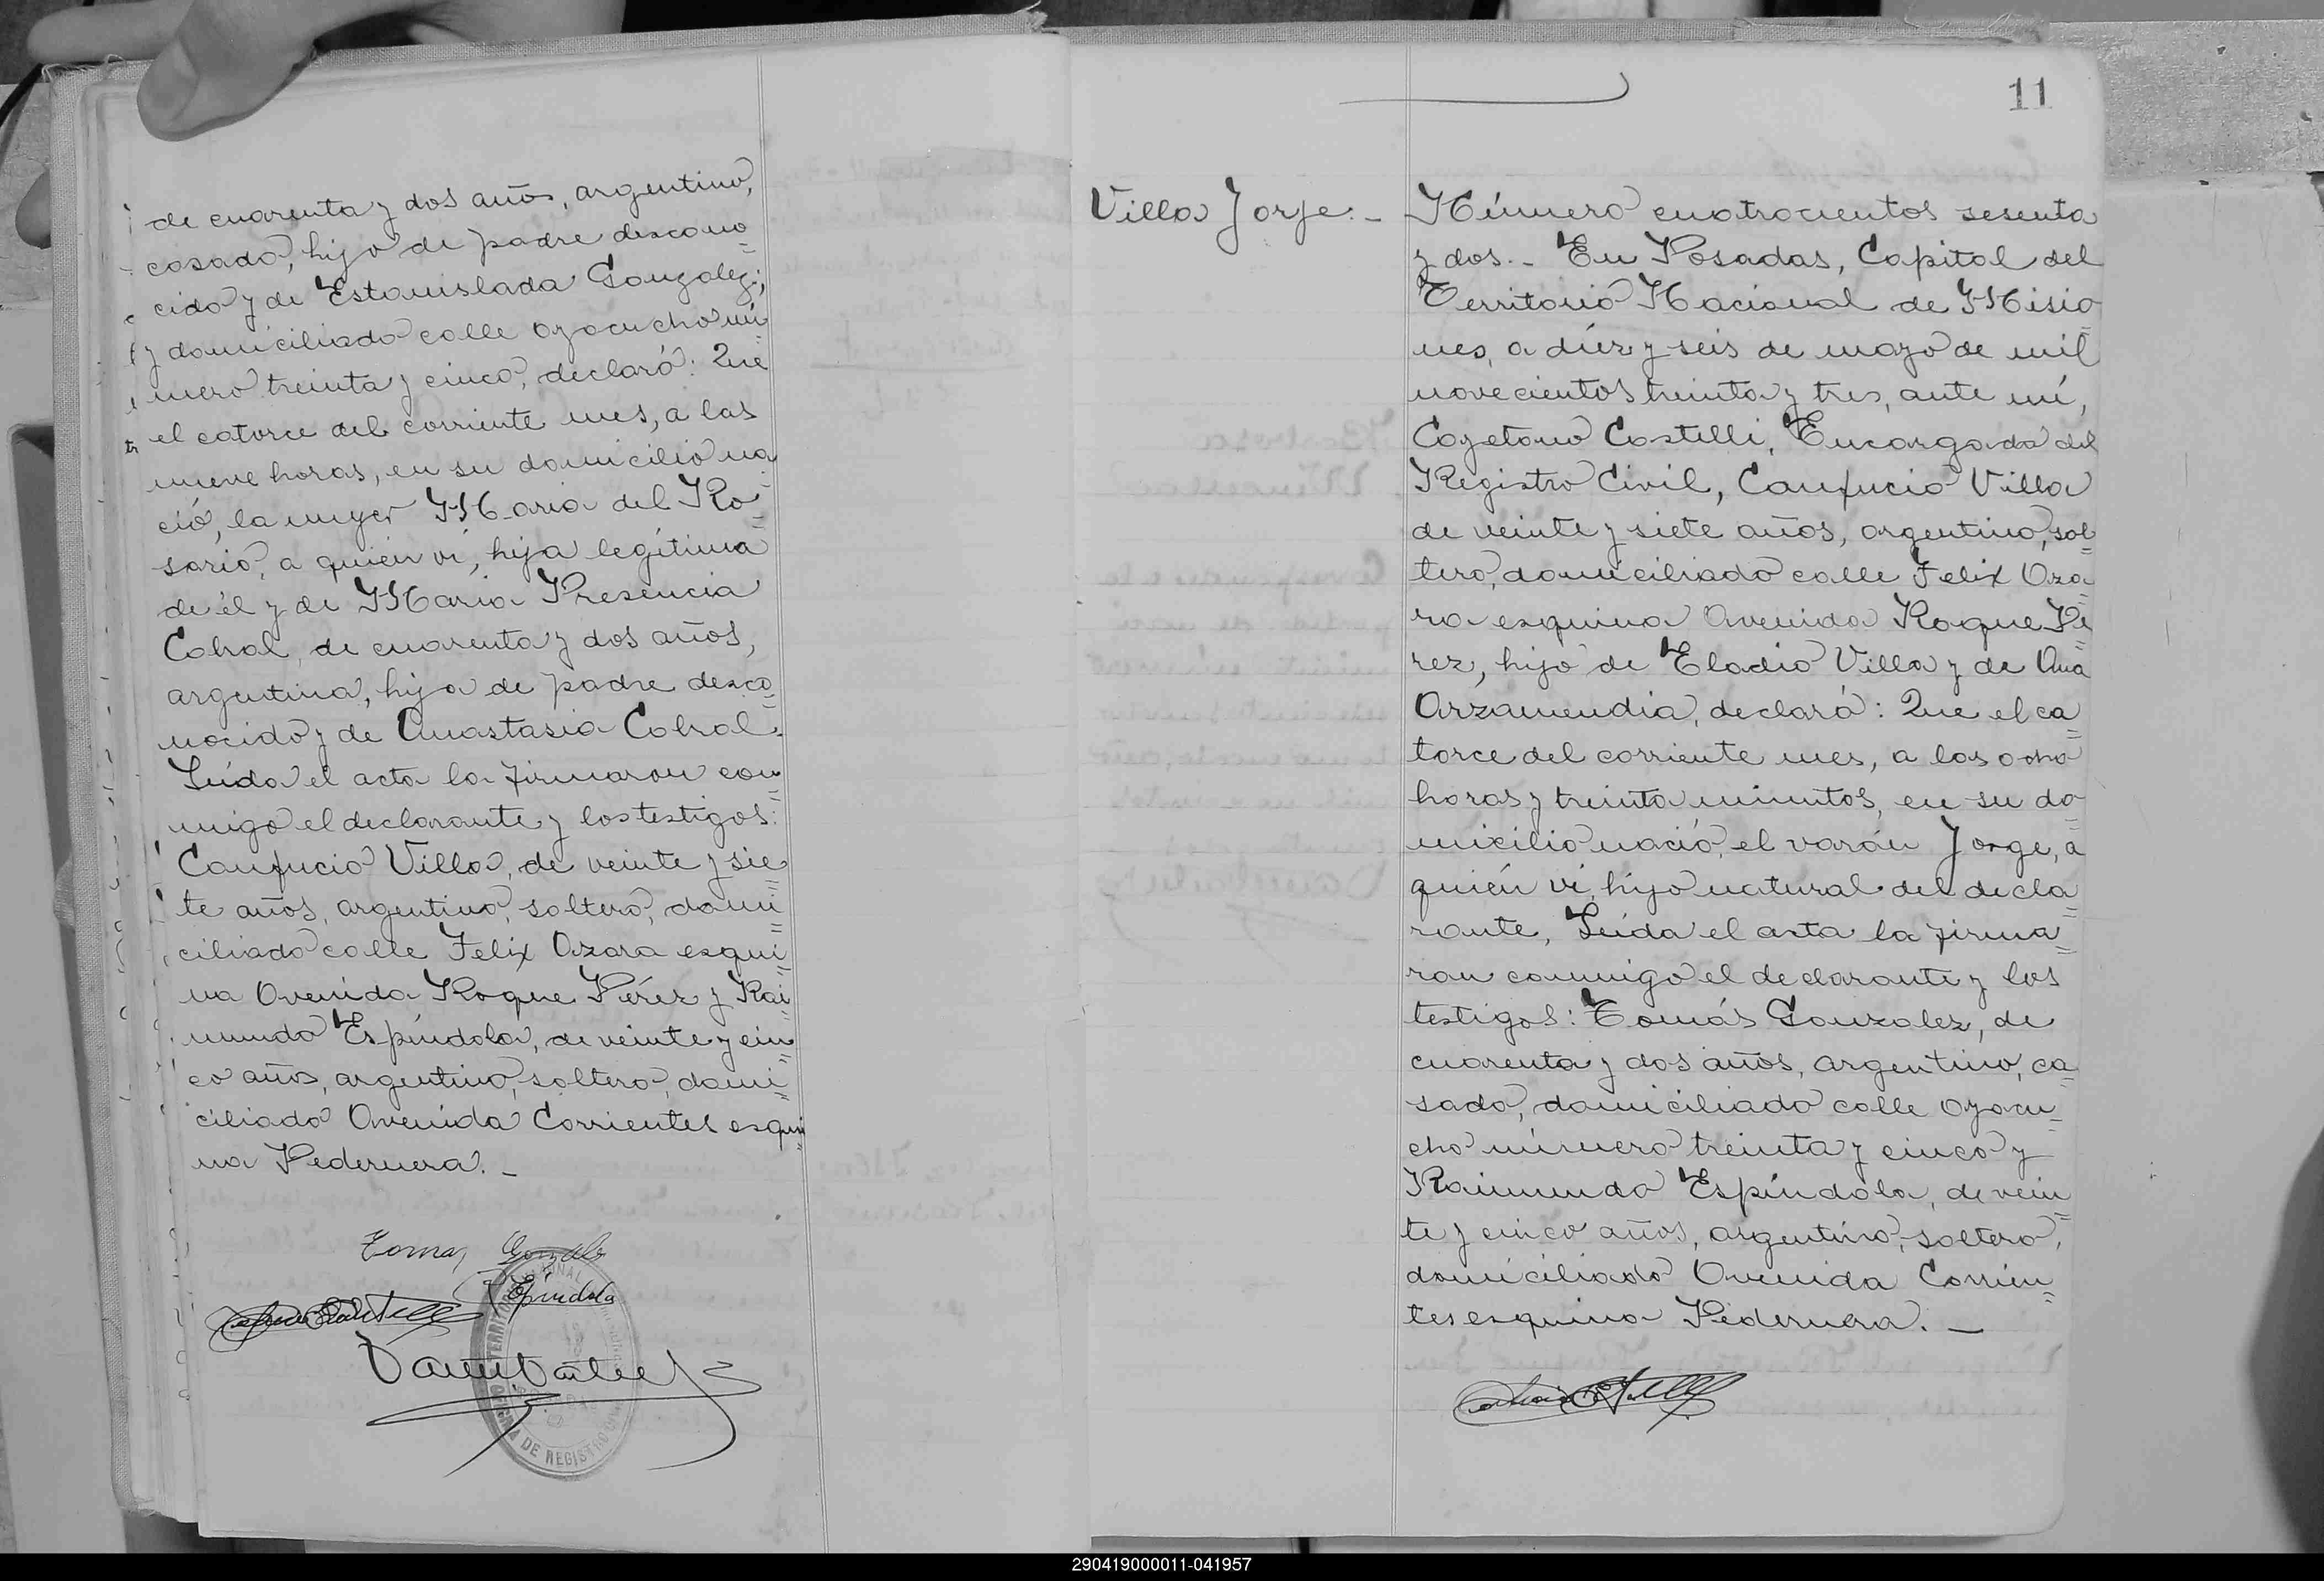 de cuarenta y dos años, argentino,
casado, hijo de padre descono=
cido y de Estanislada Gonzalez;
y domiciliado calle Ayacucho nú=
mero treinta y cinco, declaró: Que
el catorce del corriente mes, a las
nueve horas, en su domicilio na=
ció, la mujer Maria del Ro=
sario, a quién ví, hija legítima
de él y de Maria Presencia
Cabral, de cuarenta y dos años,
argentina, hija de padre desco=
nocido y de Anastasia Cabral.
Leída el acta la firmaron con=
migo el declarante y los testigos:
Canfucio Villa, de veinte y sie=
te años, argentino, soltero, domi=
ciliado calle Felix Azara esqui=
na Avenida Roque Pérez y Rai=
mundo Espíndola, de veinte y cin=
co años, argentino, soltero, domi=
ciliado Avenida Corrientes esqui=
na Pedernera. _
Tomas Gonzale
Espíndola
OFICINA DE REGISTRO
11
Villa Jorge. _
Número cuatrocientos sesenta
y dos. _ En Posadas, Capital del
Territorio Nacional de Misio=
nes, a diéz y seis de mayo de mil
novecientos treinta y tres, ante mí,
Cayetano Castelli, Encargado del
Registro Civil, Canfucio Villa
de veinte y siete años, argentino, sol=
tero, domiciliado calle Felix Aza=
ra esquina Avenida Roque Pé=
rez, hijo de Eladio Villa y de Ana
Arzamendia, declaró: Que el ca=
torce del corriente mes, a las ocho
horas y treinta minutos, en su do=
micilio nació, el varón Jorge, a
quién ví, hijo natural del decla=
rante, Leída el acta la firma=
ron conmigo el declarante y los
testigos: Tomás Gonzalez, de
cuarenta y dos años, argentino, ca=
sado, domiciliado calle Ayacu=
cho número treinta y cinco y
Raimundo Espíndola, de vein=
te y cinco años, argentino, soltero,
domiciliado Avenida Corrien=
tes esquina Pedernera. _
290419000011-041957